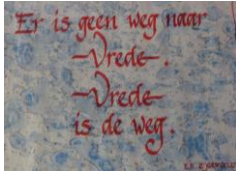 Er is geen weg naar
–Vrede–.
–Vrede–
is de weg.